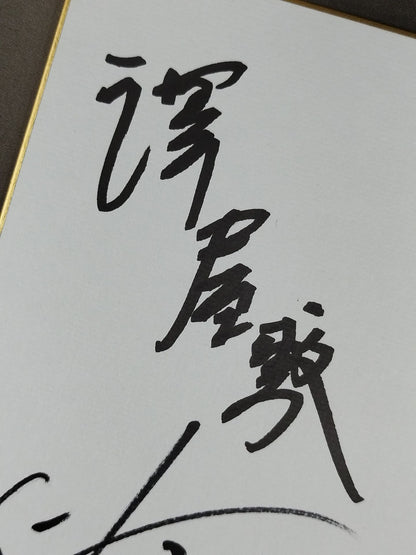 澤屋敷